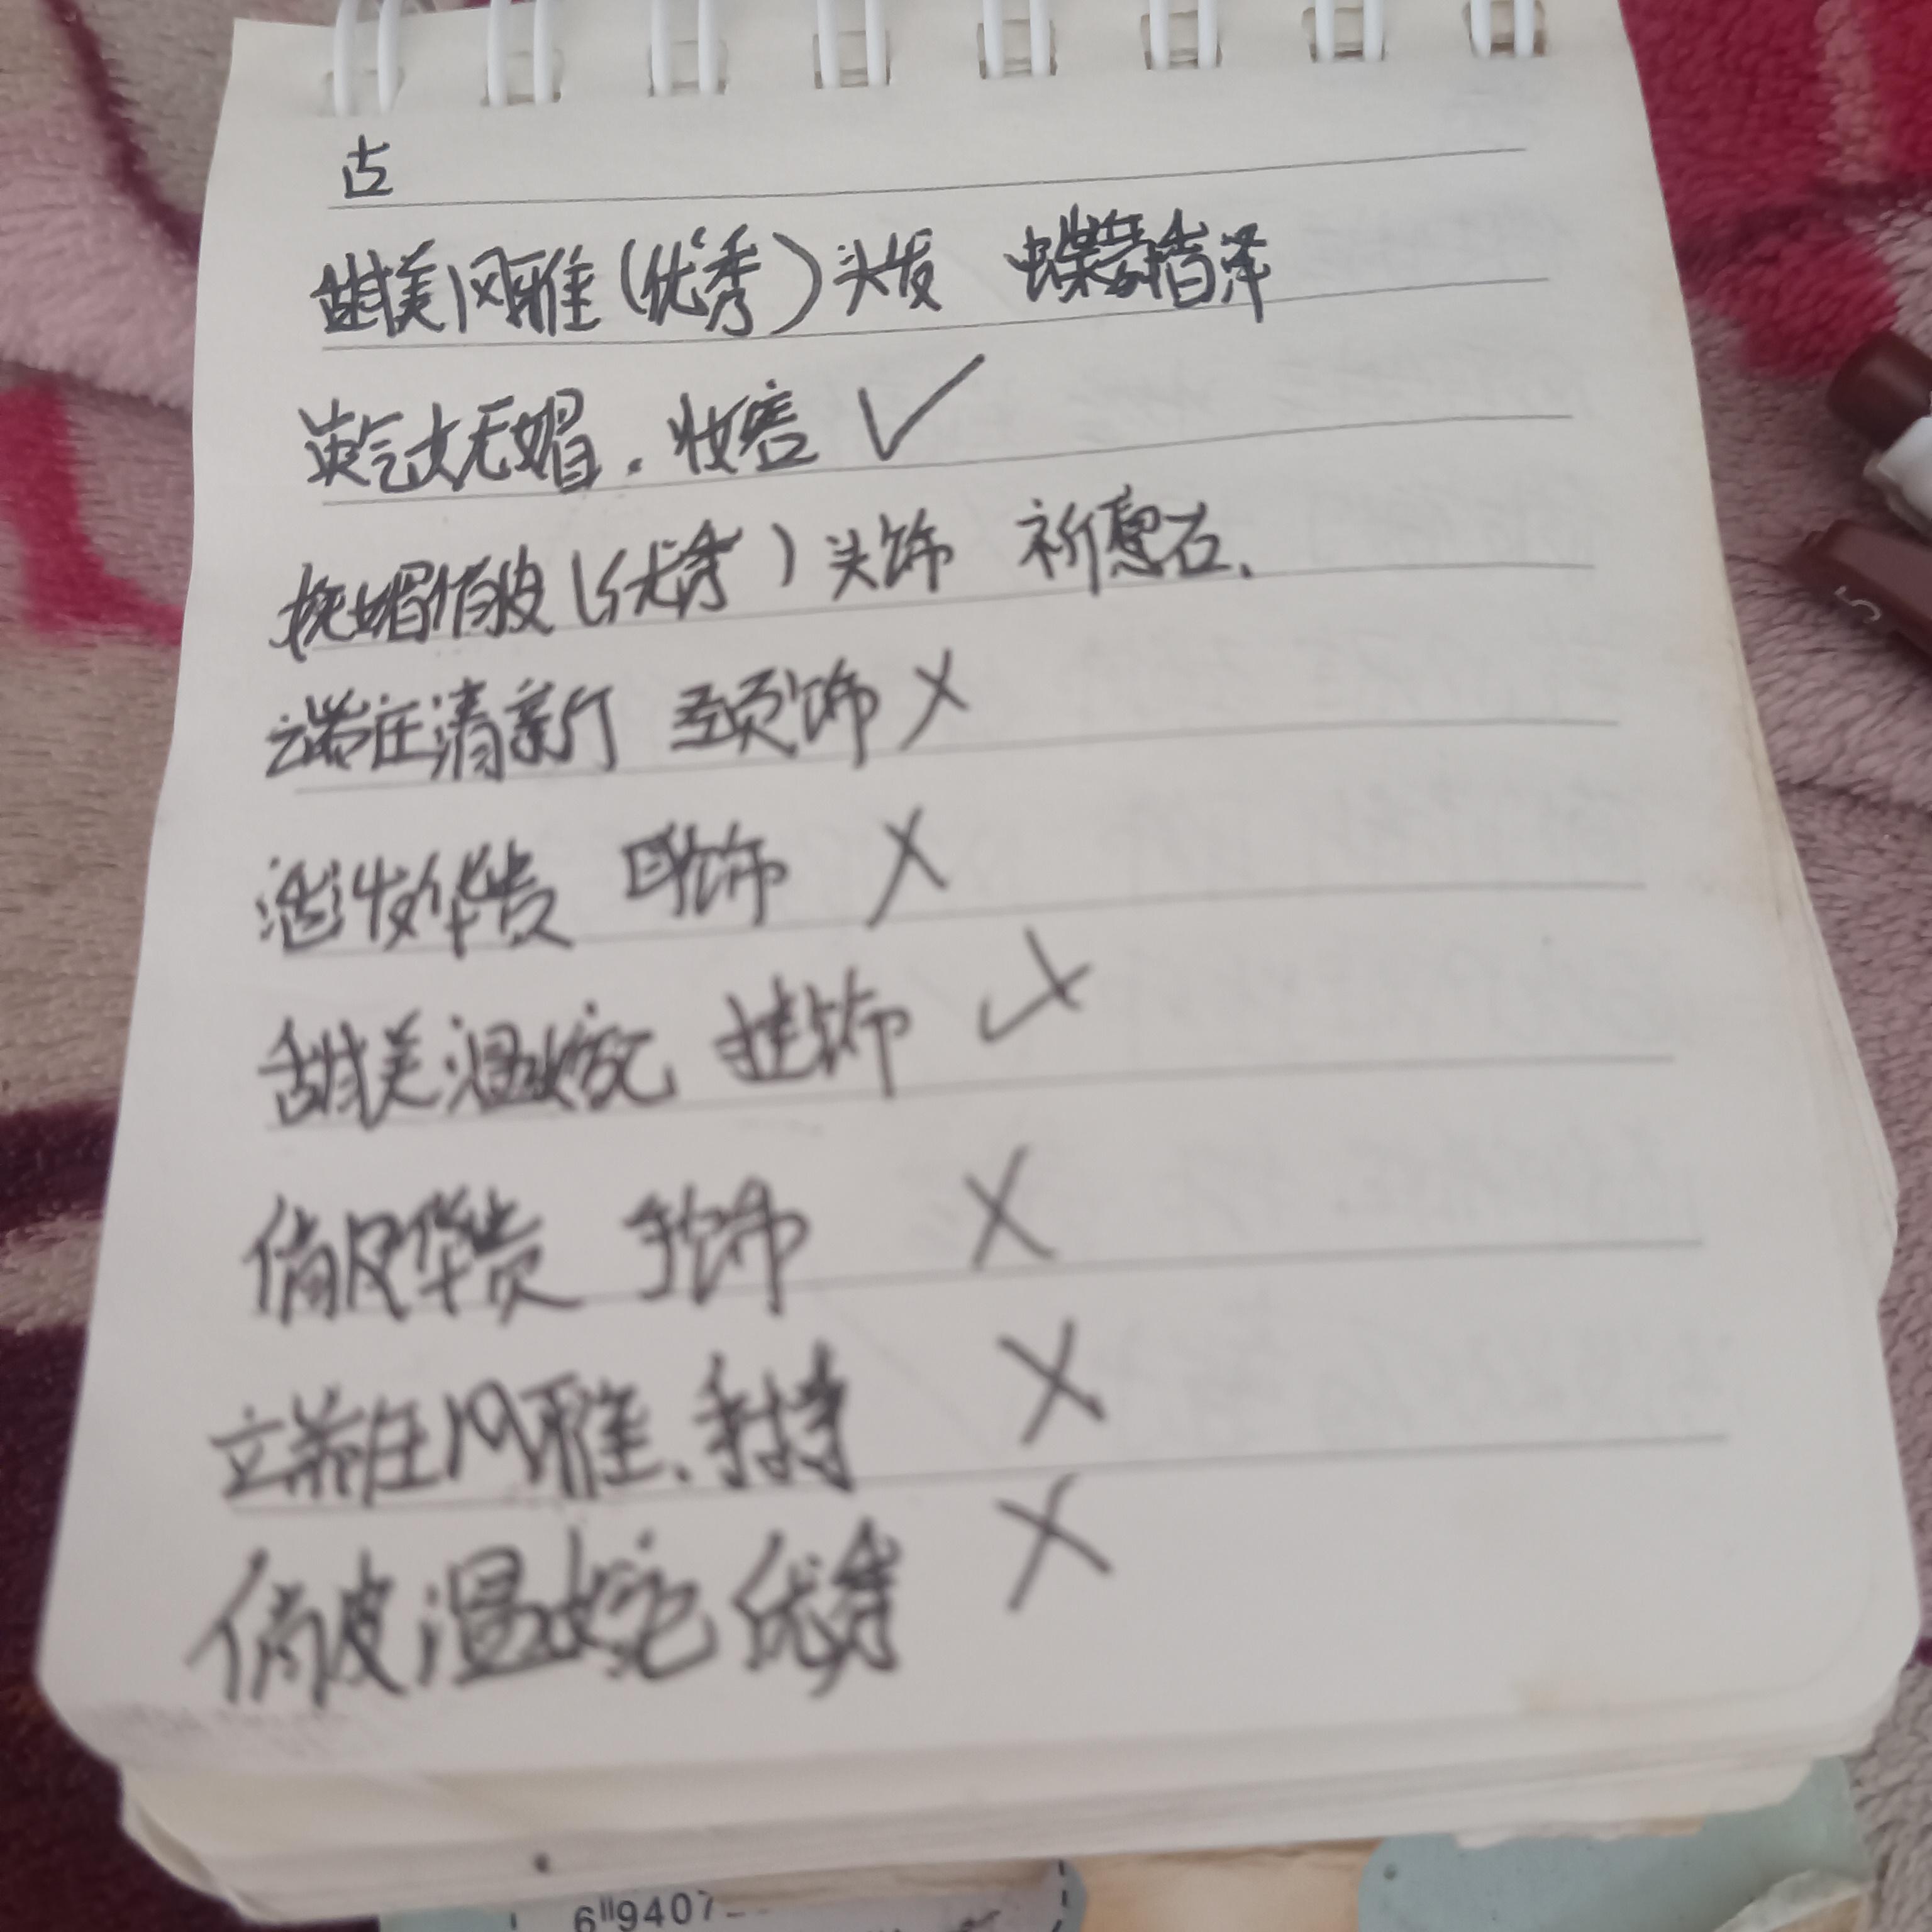 古
甜美风雅(优秀)头发 蝶梦香泽
英气妩媚.妆容 ✓
妩媚俏皮(优秀)头饰 祈愿石.
端庄清新 颈饰 ×
活泼华贵 耳饰 ×
甜美温婉 挂饰
俏皮华贵 手饰 ×
端庄风雅、手持 ×
俏皮温婉 优秀 ×
6"9407
5